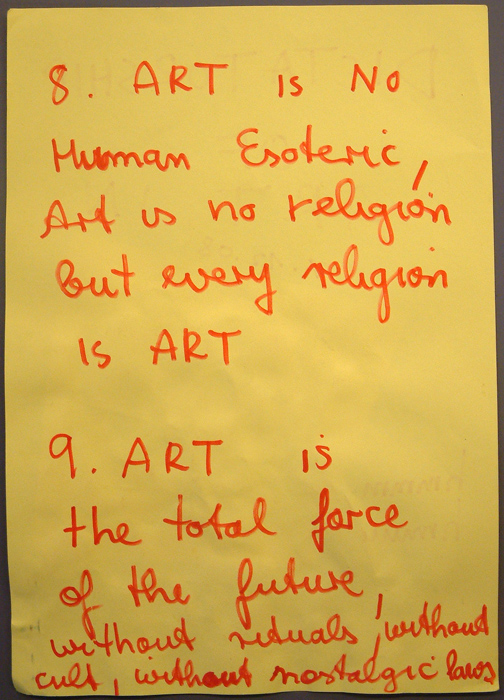 8. ART is No
Human Esoteric,
Art is no religion
but every religion
is ART
9. ART is
the total force
of the future,
without rituals, without
cult, without nostalgic laws